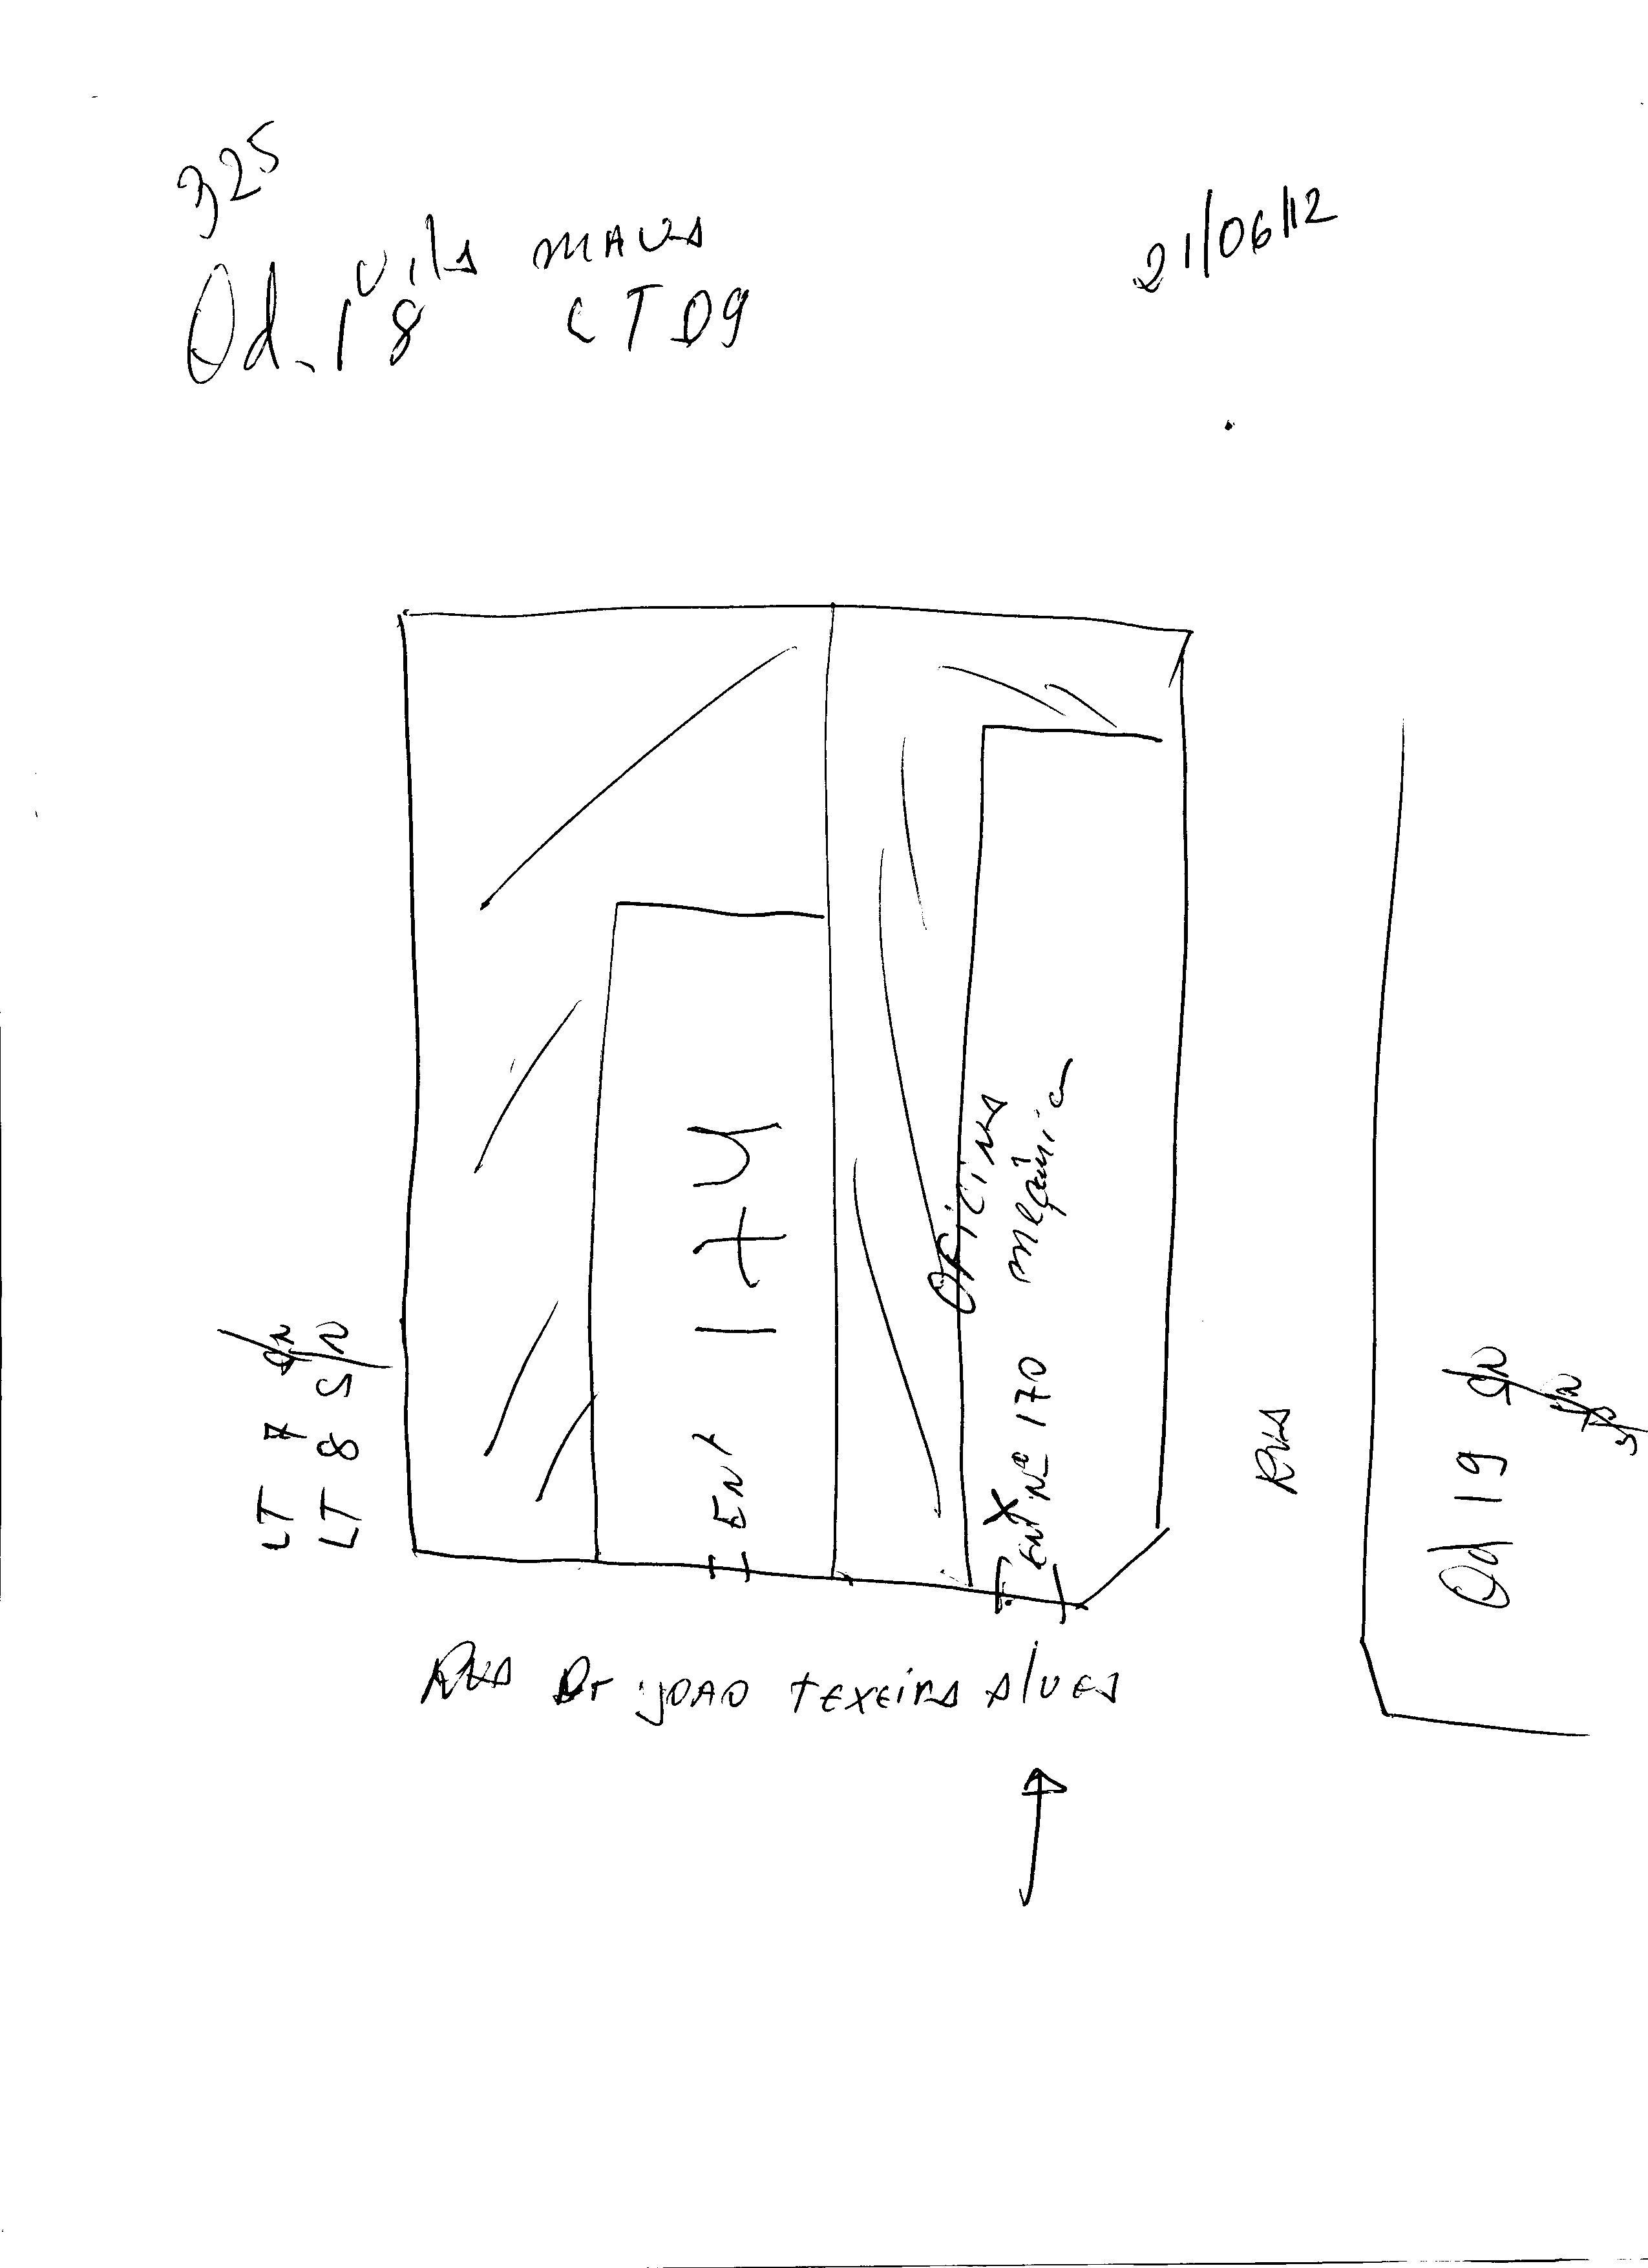 325
Vila MAUA
21/06/12
Qd. 18 LT 09
LT 7 S/N
LT 8 S/N
ENT
OFICINA
mecânica
ENT Nº 170
RUA
Qd 19 S/N
RUA Dr JOAO TEXEIRA Alves